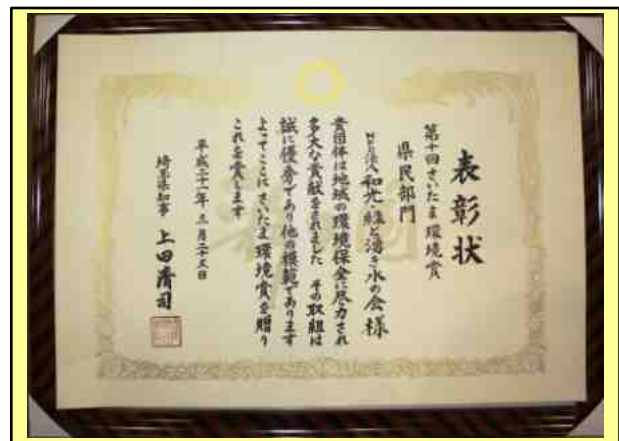 表彰状
第十回さいたま環境賞
県民部門
NPO法人 和光・緑と湧き水の会 様
貴団体は地域の環境保全に尽力され
多大な貢献をされました その取組は
誠に優秀であり他の模範であります
よってここにさいたま環境賞を贈り
これを賞します
平成二十一年二月二十三日
埼玉県知事 上田清司